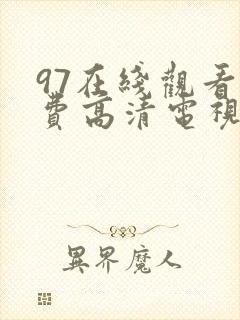 97在綫觀看
費高清電視
異界魔人